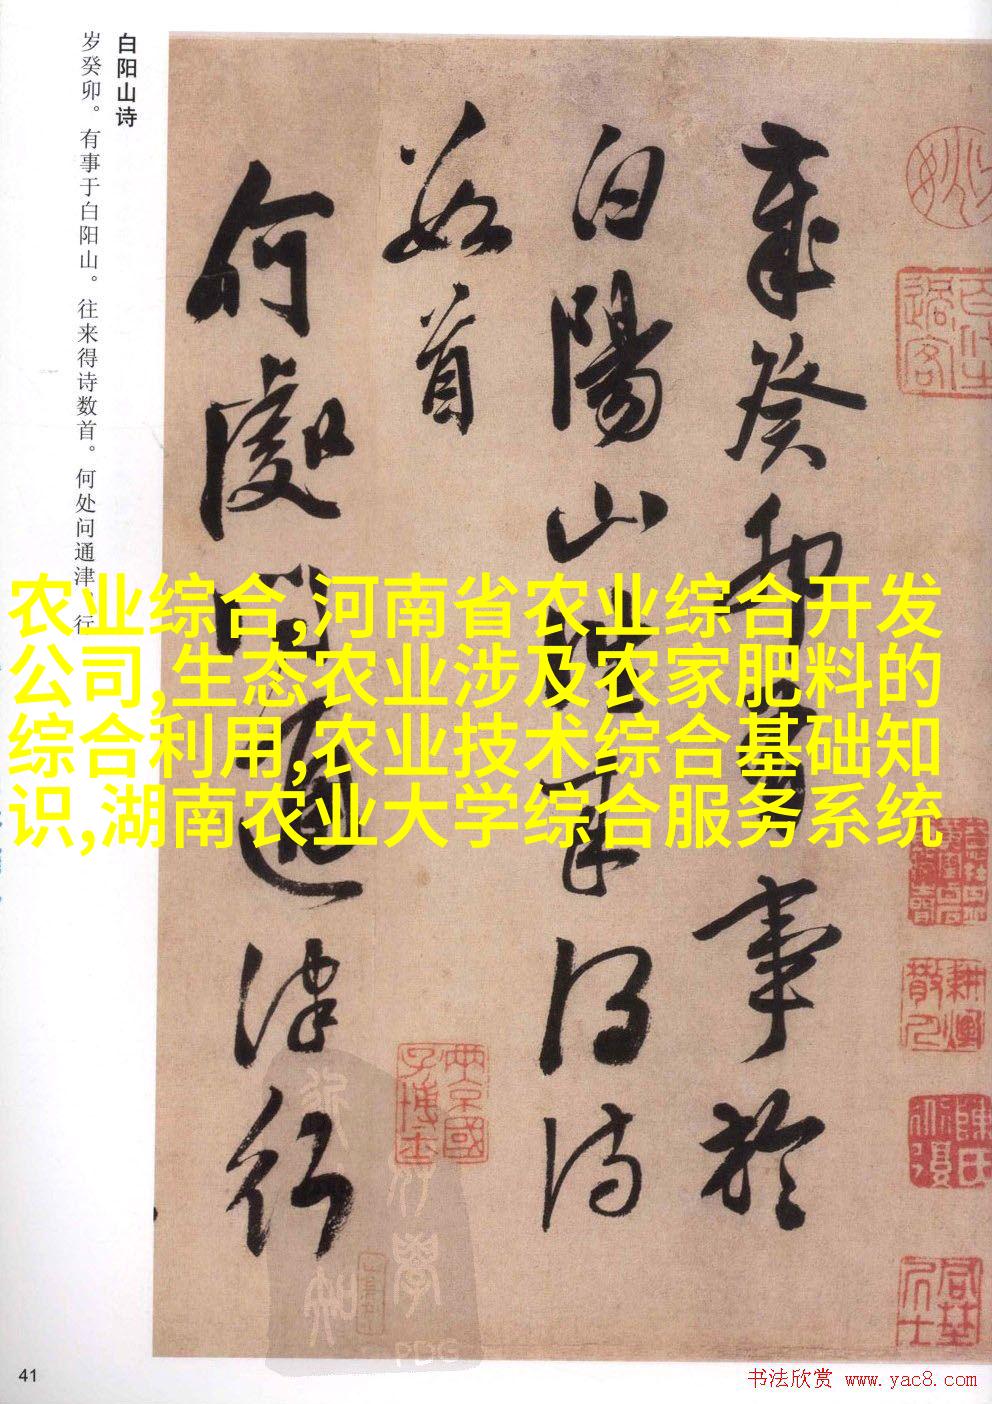 白阳山诗
岁癸卯。有事于白阳山。往来得诗数首。何处问通津。行
歲癸卯有事於
白陽山往来得诗
数首
何處問通津行
农业综合,河南省农业综合开发
公司,生态农业涉及农家肥料的
综合利用,农业技术综合基础知
识,湖南农业大学综合服务系统
41
书法欣赏 www.yac8.com
PDG